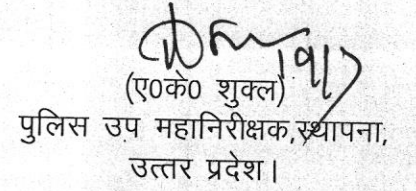 (ए0के0 शुक्ल)
पुलिस उप महानिरीक्षक,स्थापना,
उत्तर प्रदेश।